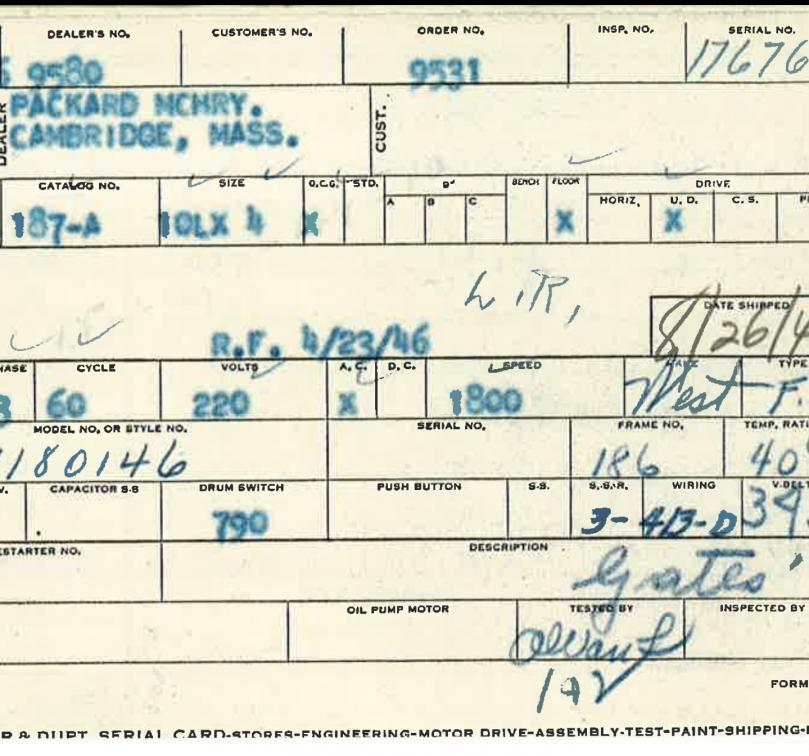 DEALER'S NO. CUSTOMER'S NO. ORDER NO. INSP. NO. SERIAL NO.
9580 9531 17676
DEALER PACKARD MCHRY. CUST.
CAMBRIDGE, MASS.
CATALOG NO. SIZE Q.C.G. STD. D" BENCH FLOOR DRIVE
A B C HORIZ. U. D. C. S.
187-A 10LX 4 X X X
L.R,
DATE SHIPPED
R.F. 4/23/46 8/26/4
HASE CYCLE VOLTS A. C. D. C. SPEED MAKE TYPE
3 60 220 X 1800 West F.
MODEL NO. OR STYLE NO. SERIAL NO. FRAME NO. TEMP. RATI
1180146 186 40
V. CAPACITOR S-S DRUM SWITCH PUSH BUTTON S-S. S.-S.-R. WIRING V-BELT
790 3-413-D 34
ESTARTER NO. DESCRIPTION
Gates
OIL PUMP MOTOR TESTED BY INSPECTED BY
FORM
R & DUPT. SERIAL CARD-STORES-ENGINEERING-MOTOR DRIVE-ASSEMBLY-TEST-PAINT-SHIPPING-